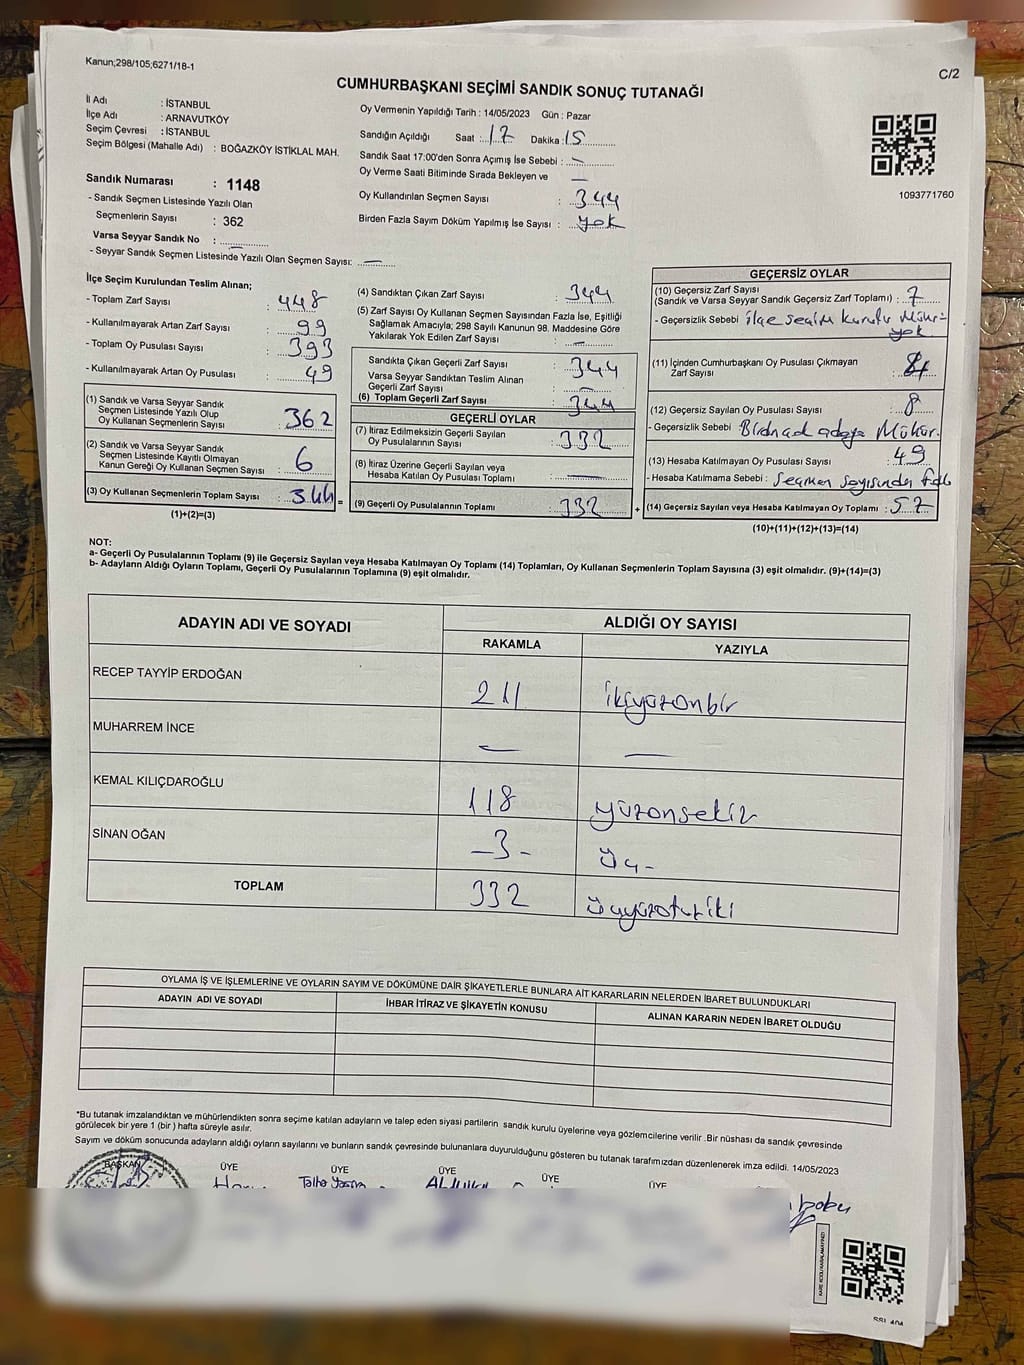 Kanun;298/105;6271/18-1
C/2
CUMHURBAŞKANI SEÇİMİ SANDIK SONUÇ TUTANAĞI
İl Adı : İSTANBUL
İlçe Adı : ARNAVUTKÖY
Seçim Çevresi : İSTANBUL
Seçim Bölgesi (Mahalle Adı) : BOĞAZKÖY İSTİKLAL MAH.
Sandık Numarası : 1148
- Sandık Seçmen Listesinde Yazılı Olan
Seçmenlerin Sayısı : 362
Varsa Seyyar Sandık No : —
- Seyyar Sandık Seçmen Listesinde Yazılı Olan Seçmen Sayısı: —
Oy Vermenin Yapıldığı Tarih : 14/05/2023 Gün : Pazar
Sandığın Açıldığı Saat : 17 Dakika : 15
Sandık Saat 17:00'den Sonra Açımış İse Sebebi : —
Oy Verme Saati Bitiminde Sırada Bekleyen ve —
Oy Kullandırılan Seçmen Sayısı : 344
Birden Fazla Sayım Döküm Yapılmış İse Sayısı : yok
1093771760
İlçe Seçim Kurulundan Teslim Alınan;
- Toplam Zarf Sayısı : 448
- Kullanılmayarak Artan Zarf Sayısı : 99
- Toplam Oy Pusulası Sayısı : 393
- Kullanılmayarak Artan Oy Pusulası : 49
(1) Sandık ve Varsa Seyyar Sandık
Seçmen Listesinde Yazılı Olup
Oy Kullanan Seçmenlerin Sayısı : 362
(2) Sandık ve Varsa Seyyar Sandık
Seçmen Listesinde Kayıtlı Olmayan
Kanun Gereği Oy Kullanan Seçmen Sayısı : 6
(3) Oy Kullanan Seçmenlerin Toplam Sayısı : 344 =
(1)+(2)=(3)
(4) Sandıktan Çıkan Zarf Sayısı : 344
(5) Zarf Sayısı Oy Kullanan Seçmen Sayısından Fazla İse, Eşitliği
Sağlamak Amacıyla; 298 Sayılı Kanunun 98. Maddesine Göre
Yakılarak Yok Edilen Zarf Sayısı : —
Sandıkta Çıkan Geçerli Zarf Sayısı : 344
Varsa Seyyar Sandıktan Teslim Alınan
Geçerli Zarf Sayısı : —
(6) Toplam Geçerli Zarf Sayısı : 344
GEÇERLİ OYLAR
(7) İtiraz Edilmeksizin Geçerli Sayılan
Oy Pusulalarının Sayısı : 332
(8) İtiraz Üzerine Geçerli Sayılan veya
Hesaba Katılan Oy Pusulası Toplamı : —
(9) Geçerli Oy Pusulalarının Toplamı : 332 +
GEÇERSİZ OYLAR
(10) Geçersiz Zarf Sayısı
(Sandık ve Varsa Seyyar Sandık Geçersiz Zarf Toplamı) : 7
- Geçersizlik Sebebi : ilçe seçim kurulu Mühür-
yok
(11) İçinden Cumhurbaşkanı Oy Pusulası Çıkmayan
Zarf Sayısı :
(12) Geçersiz Sayılan Oy Pusulası Sayısı : 8
- Geçersizlik Sebebi : adaya Mühür.
(13) Hesaba Katılmayan Oy Pusulası Sayısı : 49
- Hesaba Katılmama Sebebi : Seçmen sayısından
(14) Geçersiz Sayılan veya Hesaba Katılmayan Oy Toplamı : 57
(10)+(11)+(12)+(13)=(14)
NOT:
a- Geçerli Oy Pusulalarının Toplamı (9) ile Geçersiz Sayılan veya Hesaba Katılmayan Oy Toplamı (14) Toplamları, Oy Kullanan Seçmenlerin Toplam Sayısına (3) eşit olmalıdır. (9)+(14)=(3)
b- Adayların Aldığı Oyların Toplamı, Geçerli Oy Pusulalarının Toplamına (9) eşit olmalıdır.
ADAYIN ADI VE SOYADI
ALDIĞI OY SAYISI
RAKAMLA YAZIYLA
RECEP TAYYİP ERDOĞAN 211 ikiyüzonbir
MUHARREM İNCE — —
KEMAL KILIÇDAROĞLU 118 yüzonsekiz
SİNAN OĞAN -3- Üç-
TOPLAM 332 üçyüzotuziki
OYLAMA İŞ VE İŞLEMLERİNE VE OYLARIN SAYIM VE DÖKÜMÜNE DAİR ŞİKAYETLERLE BUNLARA AİT KARARLARIN NELERDEN İBARET BULUNDUKLARI
ADAYIN ADI VE SOYADI
İHBAR İTİRAZ VE ŞİKAYETİN KONUSU
ALINAN KARARIN NEDEN İBARET OLDUĞU
*Bu tutanak imzalandıktan ve mühürlendikten sonra seçime katılan adayların ve talep eden siyasi partilerin sandık kurulu üyelerine veya gözlemcilerine verilir .Bir nüshası da sandık çevresinde
görülecek bir yere 1 (bir ) hafta süreyle asılır.
Sayım ve döküm sonucunda adayların aldığı oyların sayılarını ve bunların sandık çevresinde bulunanlara duyurulduğunu gösteren bu tutanak tarafımızdan düzenlenerek imza edildi. 14/05/2023
BAŞKAN ÜYE ÜYE ÜYE ÜYE ÜYE